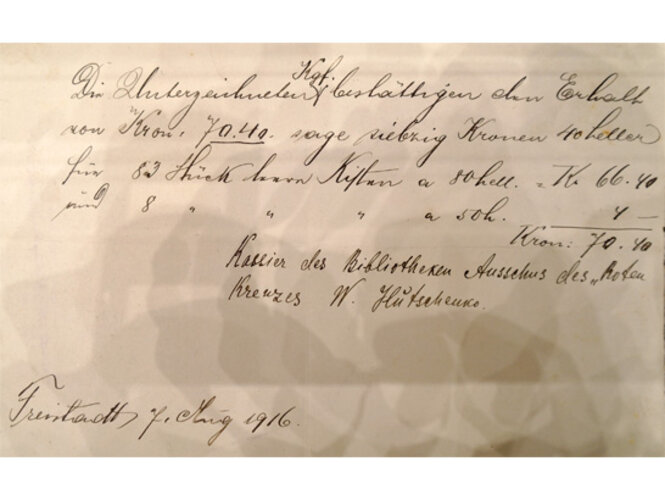 Die Unterzeichneten Kgf. bestättigen den Erhalt
von Kron: 70.40. sage siebzig Kronen 40 heller
für 83 Stück leere Kisten a 80 hell. = K. 66.40
und 8 " " " a 50 h. 4 —
Kron: 70.40
Kassier des Bibliotheken Ausschus des „Roten
Kreuzes W. Hutschenko.
Freistadt, 7. Aug 1916.